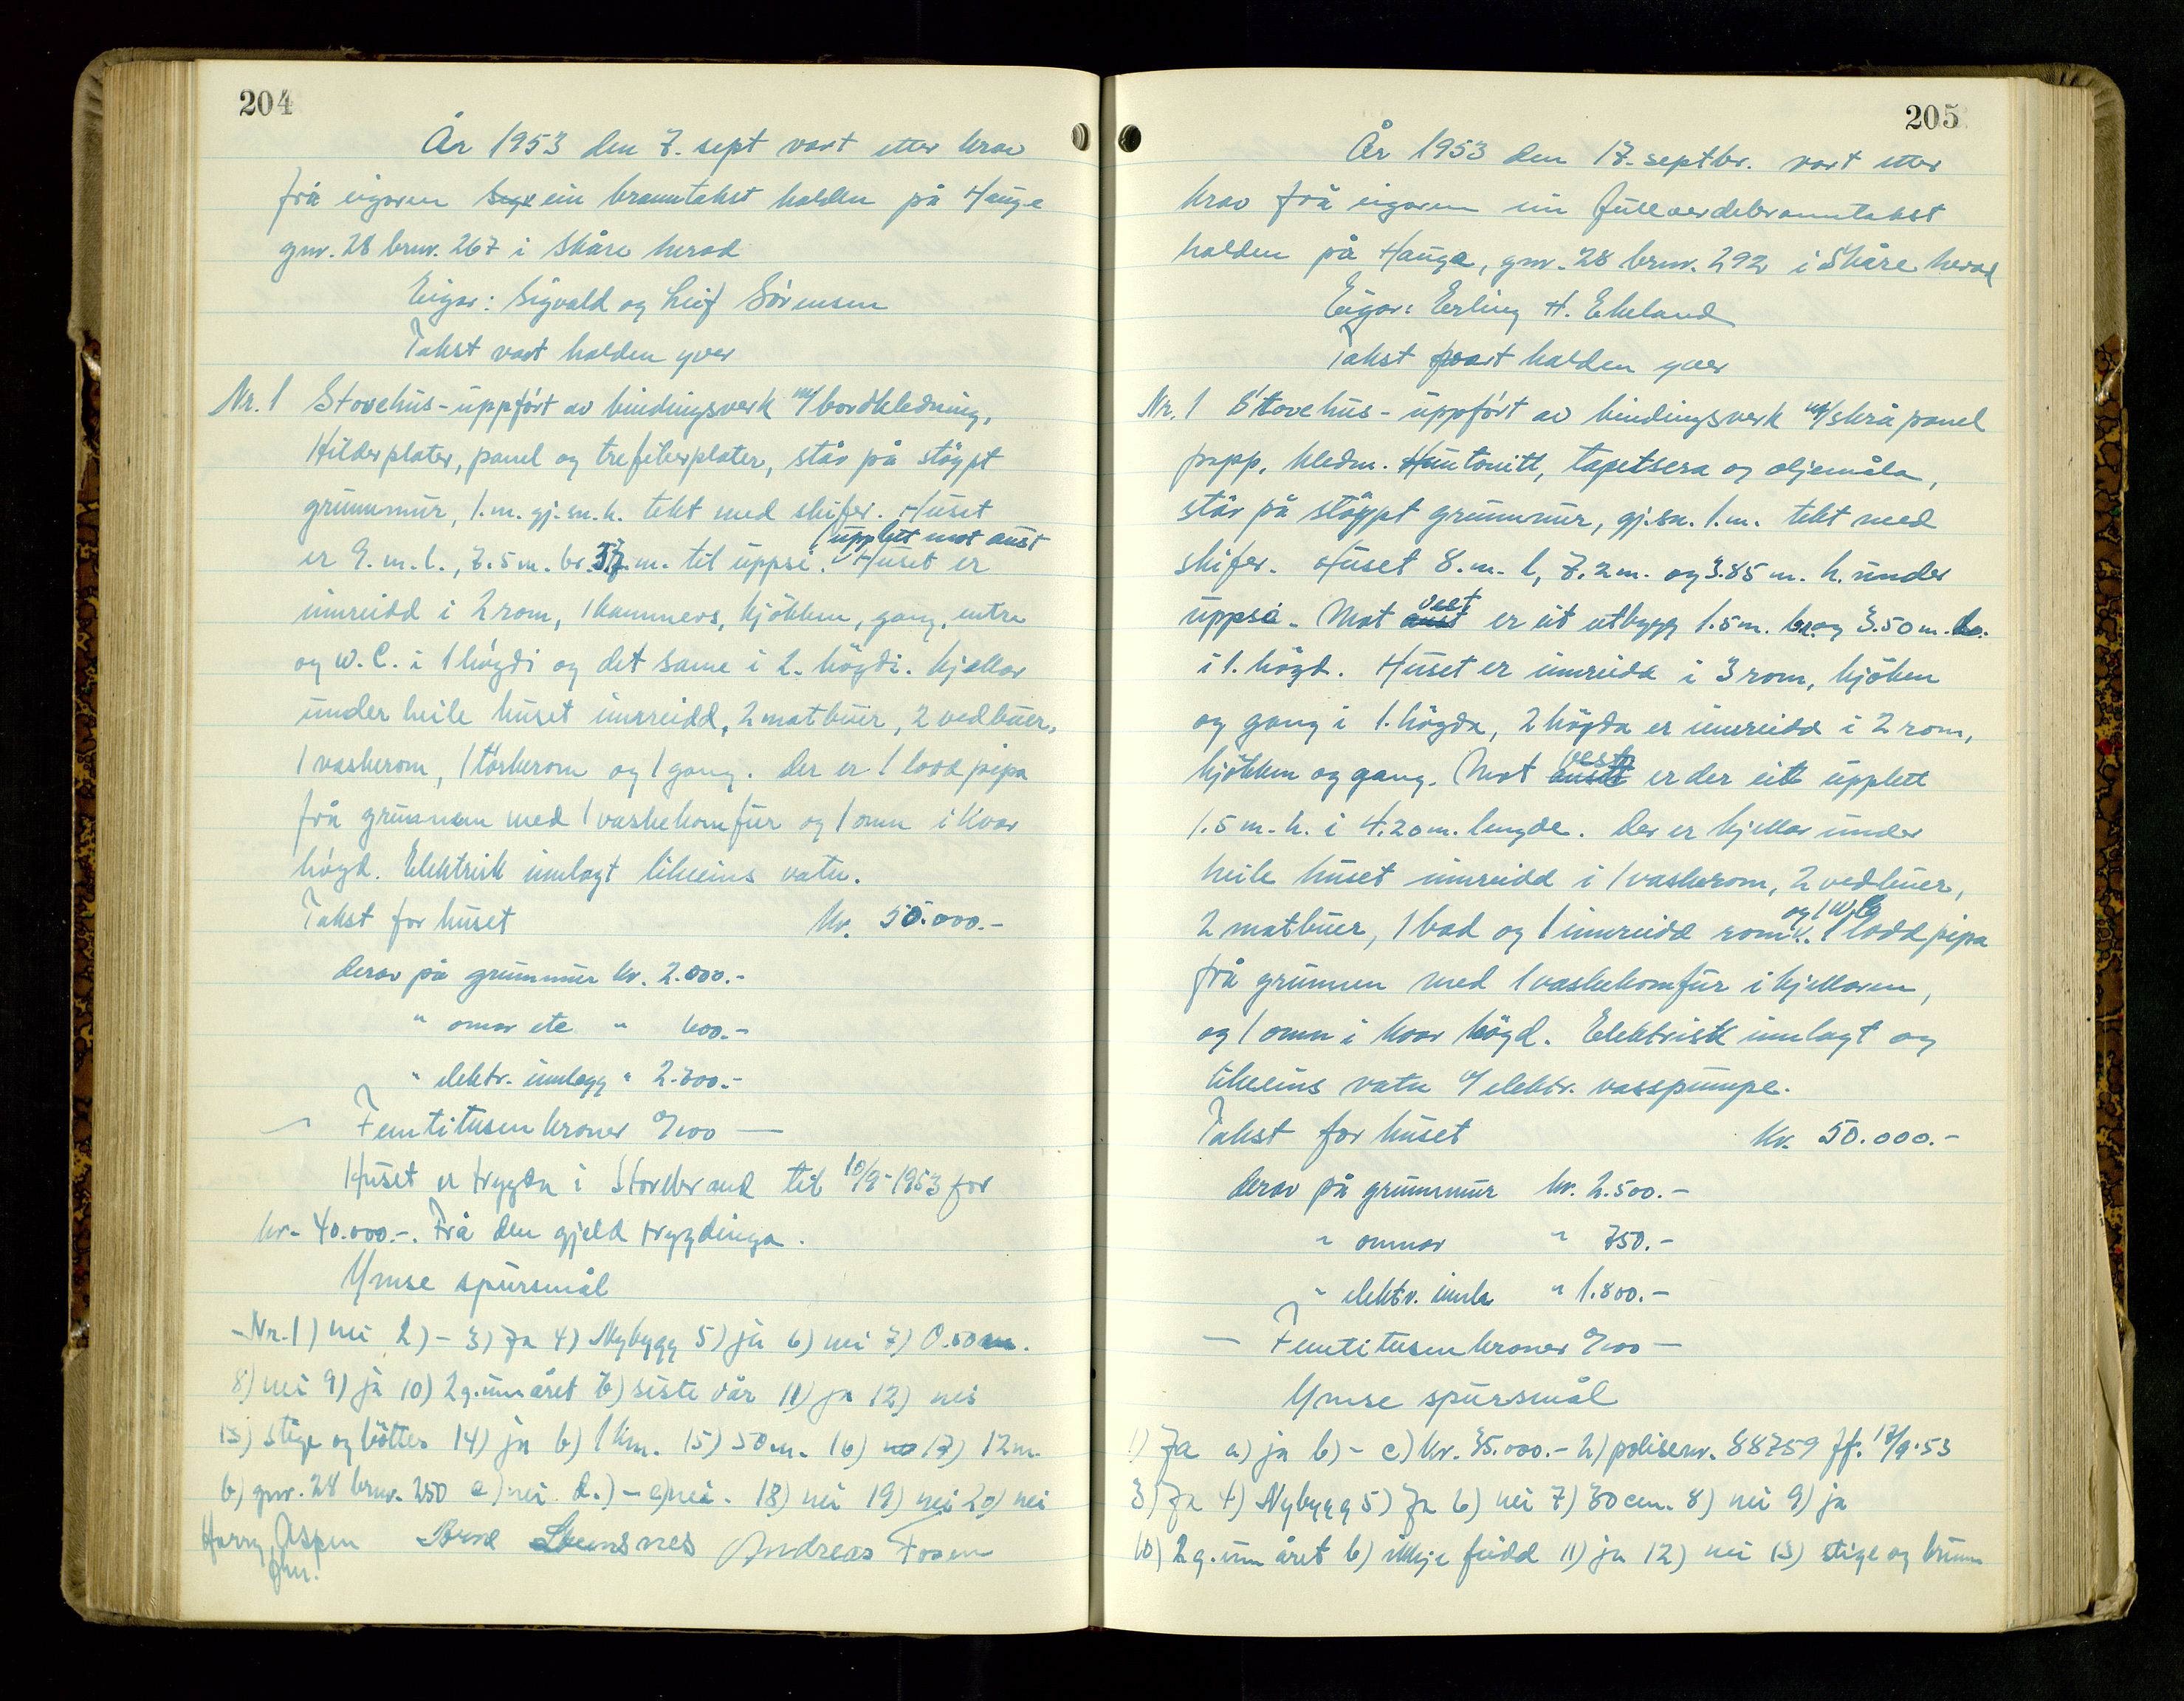 204
År 1953 den 7. sept vart etter krav
frå eigaren ein branntakst halden på Hauge
gnr. 28 bnr. 267 i Skåre herad
Eigar: Sigvald og Leif Sørensen
Takst vart halden yver
Nr. 1 Stovehus - uppført av bindingsverk m/bordkledning,
Hilderplater, panel og trefiberplater, står på støypt
grunnmur, 1.m. gj.sn.h. tekt med skifer. Huset
upplett mot aust
er 9.m.l., 7.5 m. br. 5.7.m. til uppsi. Huset er
innreidd i 2 rom, 1 kammers, kjøkken, gang, entre
og W.C. i 1 høgdi og det same i 2. høgdi. Kjellar
under heile huset innreidd, 2 matbuer, 2 vedbuer,
1 vaskerom, 1 tørkerom og 1 gang. Der er 1 lodd pipa
frå grunnen med 1 vaskekomfur og 1 omn i kvar
høgd. Elektrisk innlagt likeeins vatn.
Takst for huset kr. 50.000.-
derav på grunnmur kr. 2.000.-
" omar etc " 600.-
" elektr. innlegg " 2.700.-
- Femtitusen kroner 0/100 -
Huset er trygda i Storebrand til 10/9-1953 for
kr. 40.000.-. Frå den gjeld trygdinga.
Ymse spursmål
Nr. 1) nei 2) - 3) Ja 4) Nybygg 5) ja 6) nei 7) 0.50 m.
8) nei 9) ja 10) 2 g. um året b) siste vår 11) ja 12) nei
13) Stige og bøtter 14) ja b) 1 km. 15) 50 m. 16) no 17) 12 m.
b) gnr. 28 bnr. 250 c) nei d.) - e) nei. 18) nei 19) nei 20) nei
Harry Aspen Arne Steinsnes Andreas Fosen
fm.
205
År 1953 den 17. septbr. vart etter
krav frå eigaren ein fullverdebranntakst
halden på Hauge, gnr. 28 bnr. 292 i Skåre herad
Eigar: Erling H. Ekeland
Takst vart halden yver
Nr. 1 Stovehus - uppført av bindingsverk m/skrå panel
papp, kledn. Huntonitt, tapetsera og oljemåla,
står på støypt grunnmur, gj.sn. 1.m. tekt med
skifer. Huset 8.m. l, 7.2 m. og 3.85 m. h. under
vest
uppsi. Mot aust er eit utbygg 1.5 m. br. og 3.50 m. l.
i 1. høgd. Huset er innreidd i 3 rom, kjøken
og gang i 1. høgda, 2 høgda er innreidd i 2 rom,
vest
kjøkken og gang. Mot aust er der eitt upplett
1.5 m. h. i 4.20 m. lengde. Der er kjellar under
heile huset innreidd i 1 vaskerom, 2 vedbuer,
og 1 W.C
2 matbuer, 1 bad og 1 innreidd rom. 1 lodd pipa
frå grunnen med 1 vaskekomfur i kjellaren,
og 1 omn i kvar høgd. Elektrisk innlagt og
likeeins vatn m/ elektr. vasspumpe.
Takst for huset kr. 50.000.-
derav på grunnmur kr. 2.500.-
" omnar " 750.-
" elektr. innl. " 1.800.-
- Femtitusen kroner 0/100 -
Ymse spursmål
1) Ja a) ja b) - c) kr. 35.000.- 2) polisenr. 88759 ff. 17/9-53
3) Ja 4) Nybygg 5) Ja 6) nei 7) 30 cm. 8) nei 9) ja
10) 2 g. um året b) ikkje feidd 11) ja 12) nei 13) stige og brunn